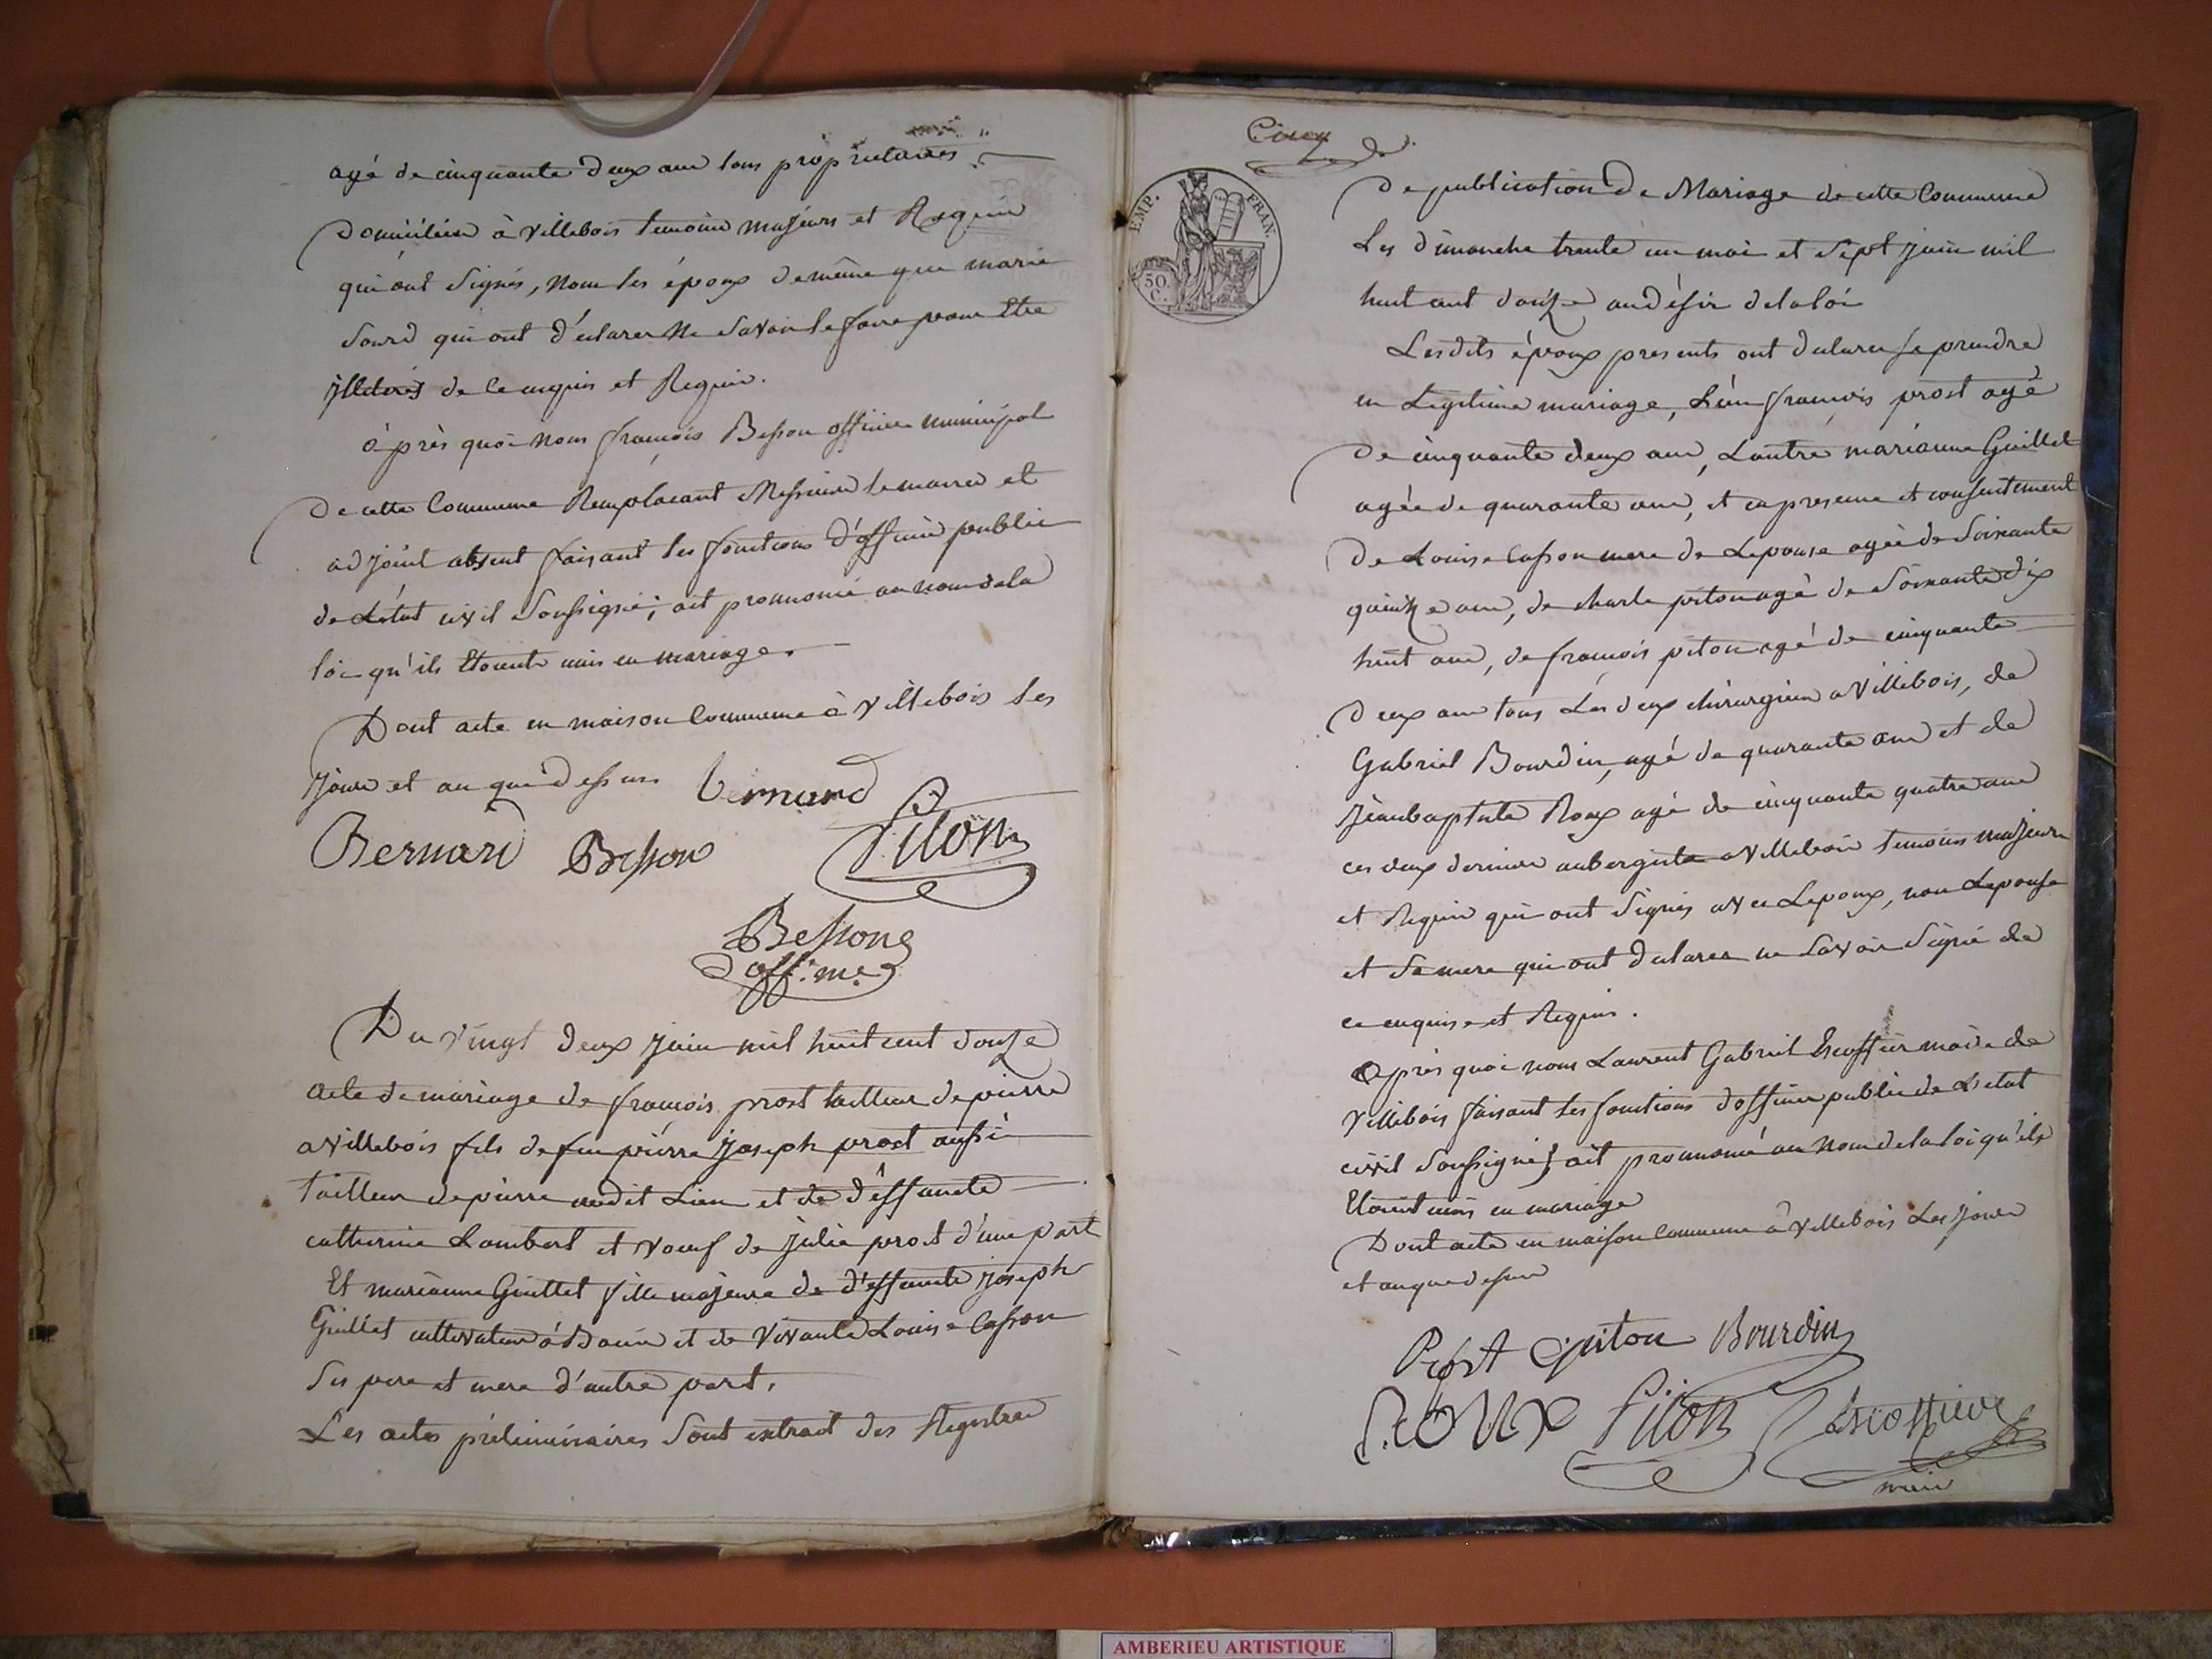 agé de cinquante deux ans tous propriétaires
Domiciliés à villebois temoins majeurs et Requis
qui ont signés, non les époux de même que marie
Sourd qui ont déclarer ne Savoir le faire pour être
illiterés de ce enquis et Requis.
après quoi nous françois Besson officier municipal
De cette Commune Remplacant Messieurs le maire et
adjoint absent faisant les fonctions d'officier public
de L'état civil Soussigné; ait prononcé au nom de la
loi qu'ils étoient unis en mariage.
Dont acte en maison Commune à villebois les
jour et an que dessus bernard
Bernard Besson Piton
Besson
off. m.
Du vingt deux juin mil huit cent douze
acte de mariage de françois prost tailleur de pierre
a villebois fils de feu pierre joseph prost aussi
tailleur de pierre audit Lieu et de deffunte
catherine Lombert et veuf de julie prost d'une part
Et marianne Guillet fille majeure de deffunte joseph
Guillet cultivateur à et de vivante Louise Casson
Ses pere et mere d'autre part.
Les actes préliminaires Sont extrait des Registres
Cinq
EMP. FRAN.
50. C.
De publication De Mariage de cette Commune
Les dimanche trente un mai et Sept juin mil
huit cent douze au désir de la loi
Lesdits époux presents ont declarer se prendre
en Legitime mariage, L'un françois prost agé
De cinquante deux ans, L'autre marianne Guillet
agée de quarante ans, et en presence et consentement
De Louise Casson mere de Lepouse agée de Soixante
quinze ans, de charle piton agé de Soixante dix
huit ans, de françois piton agé de cinquante
Deux ans tous Les deux chirurgiens a Villebois, de
Gabriel Bourdin, agé de quarante ans et de
jean baptiste Roux agé de cinquante quatre ans
ces deux derniers aubergiste a Villebois temoins majeurs
et Requis qui ont Signés avec Lepoux, non Lepouse
et Sa mere qui ont declarer ne Savoir Signé de
ce enquise et Requis.
après quoi nous Laurent Gabriel Escoffier maire de
Villebois faisant les fonctions d'officier public de L'etat
civil Soussigné, ait prononcé au Nom de la loi qu'ils
Etoient unis en mariage
Dont acte en maison Commune à Villebois Les jour
et an que dessus
Prost piton Bourdin
Roux Piton Escoffier
maire
AMBERIEU ARTISTIQUE